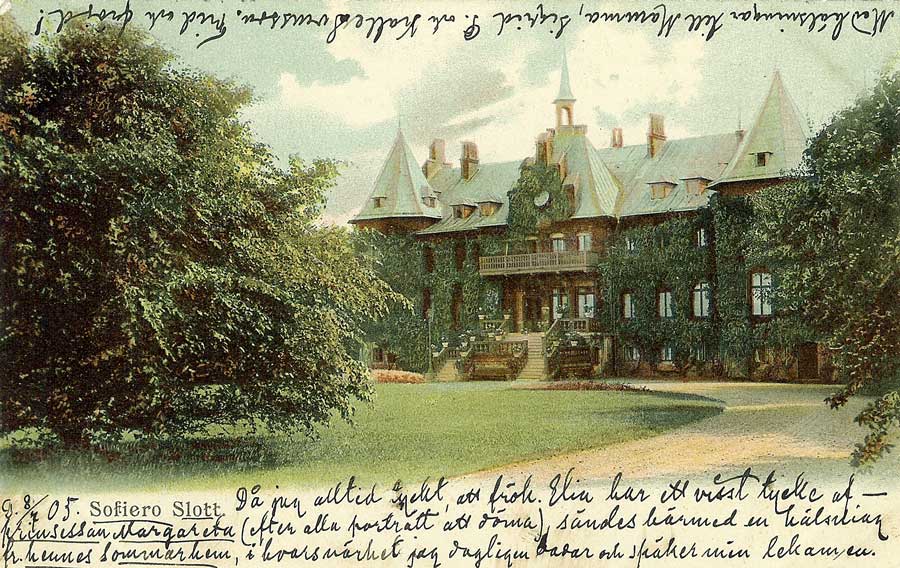 D. 8/7 05. Sofiero Slott. Då jag alltid tyckt, att frök. Elia har ett visst tycke af
prinsessan Margareta (efter alla porträtt att döma), sändes härmed en hälsning
fr. hennes sommarhem, i hvars närhet jag dagligen badar och späker min lekamen.
Med hälsningar till Mamma, Sigrid P. och Kalle
Frid och fröjd!